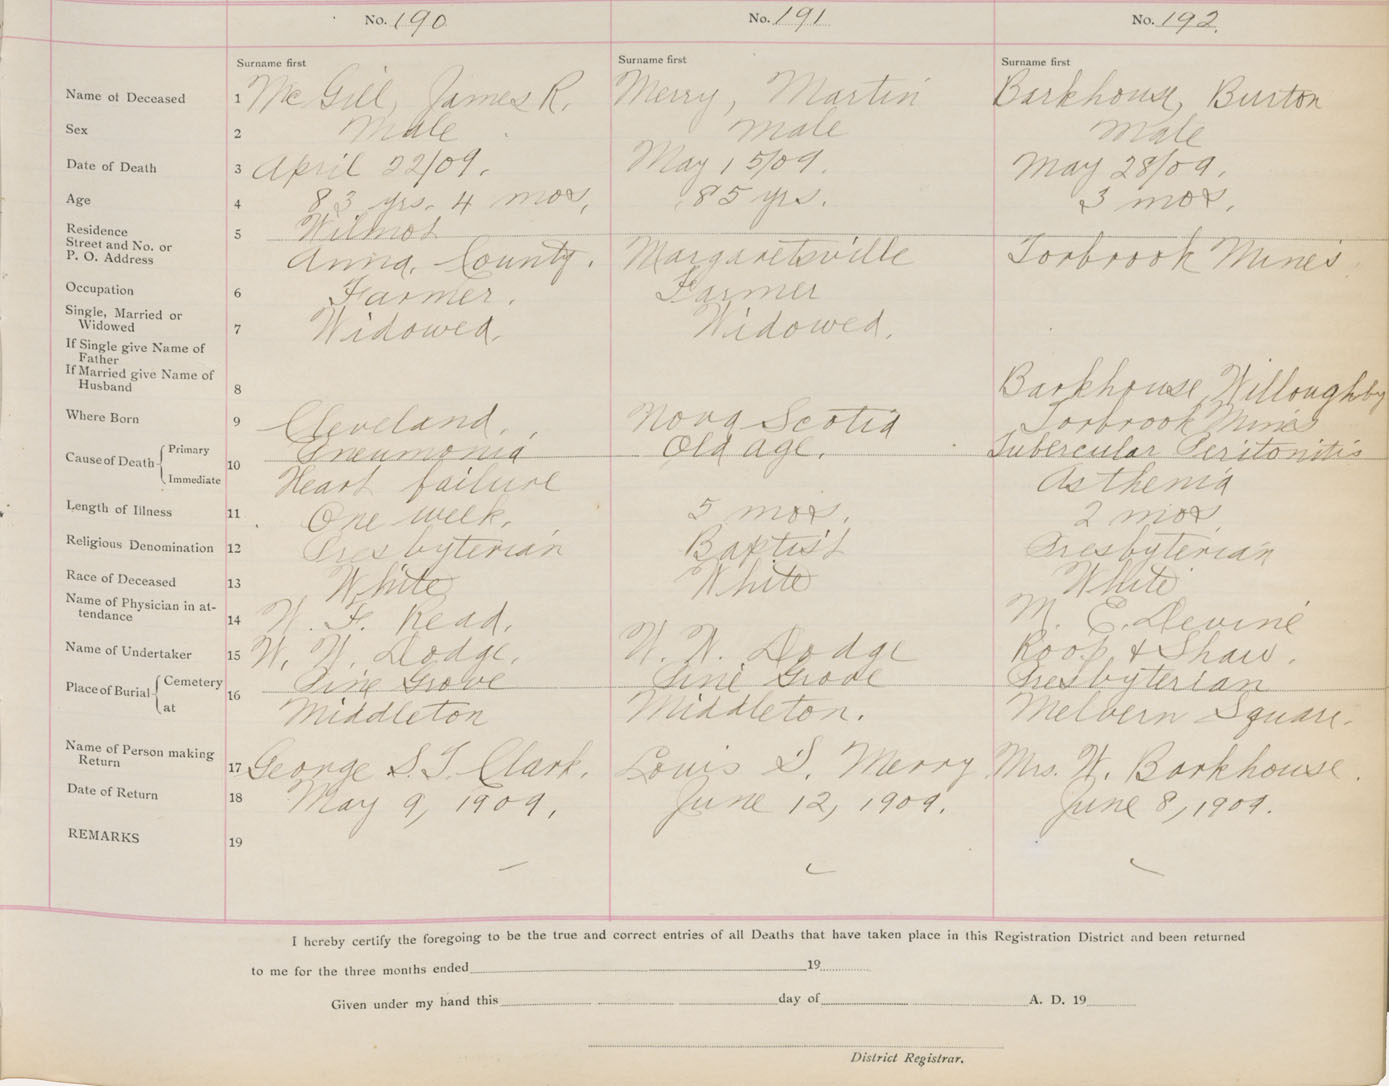 No. 190 No. 191 No. 192.
Surname first Surname first Surname first
Name of Deceased 1 McGill, James R. Merry, Martin Barkhouse, Burton
Sex 2 Male Male Male
Date of Death 3 April 22/09. May 15/09. May 28/09.
Age 4 83 yrs. 4 mos. 85 yrs. 3 mos.
Residence 5 Wilmot
Street and No. or
P. O. Address Anna. County. Margaretsville Torbrook Mines
Occupation 6 Farmer. Farmer
Single, Married or
Widowed 7 Widowed. Widowed.
If Single give Name of
Father
If Married give Name of
Husband 8 Barkhouse, Willoughby
Where Born 9 Cleveland. Nova Scotia Torbrook Mines
Cause of Death Primary 10 Pneumonia Old age. Tubercular Peritonitis
Immediate Heart failure Asthenia
Length of Illness 11 One week. 5 mos. 2 mos.
Religious Denomination 12 Presbyterian Baptist Presbyterian
Race of Deceased 13 White White White
Name of Physician in at-
tendance 14 W. F. Read. M. E. Devine
Name of Undertaker 15 W. W. Dodge. W. W. Dodge Roop & Shaw.
Place of Burial Cemetery 16 Pine Grove Pine Grove Presbyterian
at Middleton Middleton. Melvern Square.
Name of Person making
Return 17 George S. T. Clark. Louis S. Merry Mrs. W. Barkhouse.
Date of Return 18 May 9, 1909. June 12, 1909. June 8, 1909.
REMARKS 19
I hereby certify the foregoing to be the true and correct entries of all Deaths that have taken place in this Registration District and been returned
to me for the three months ended 19
Given under my hand this day of A. D. 19
District Registrar.